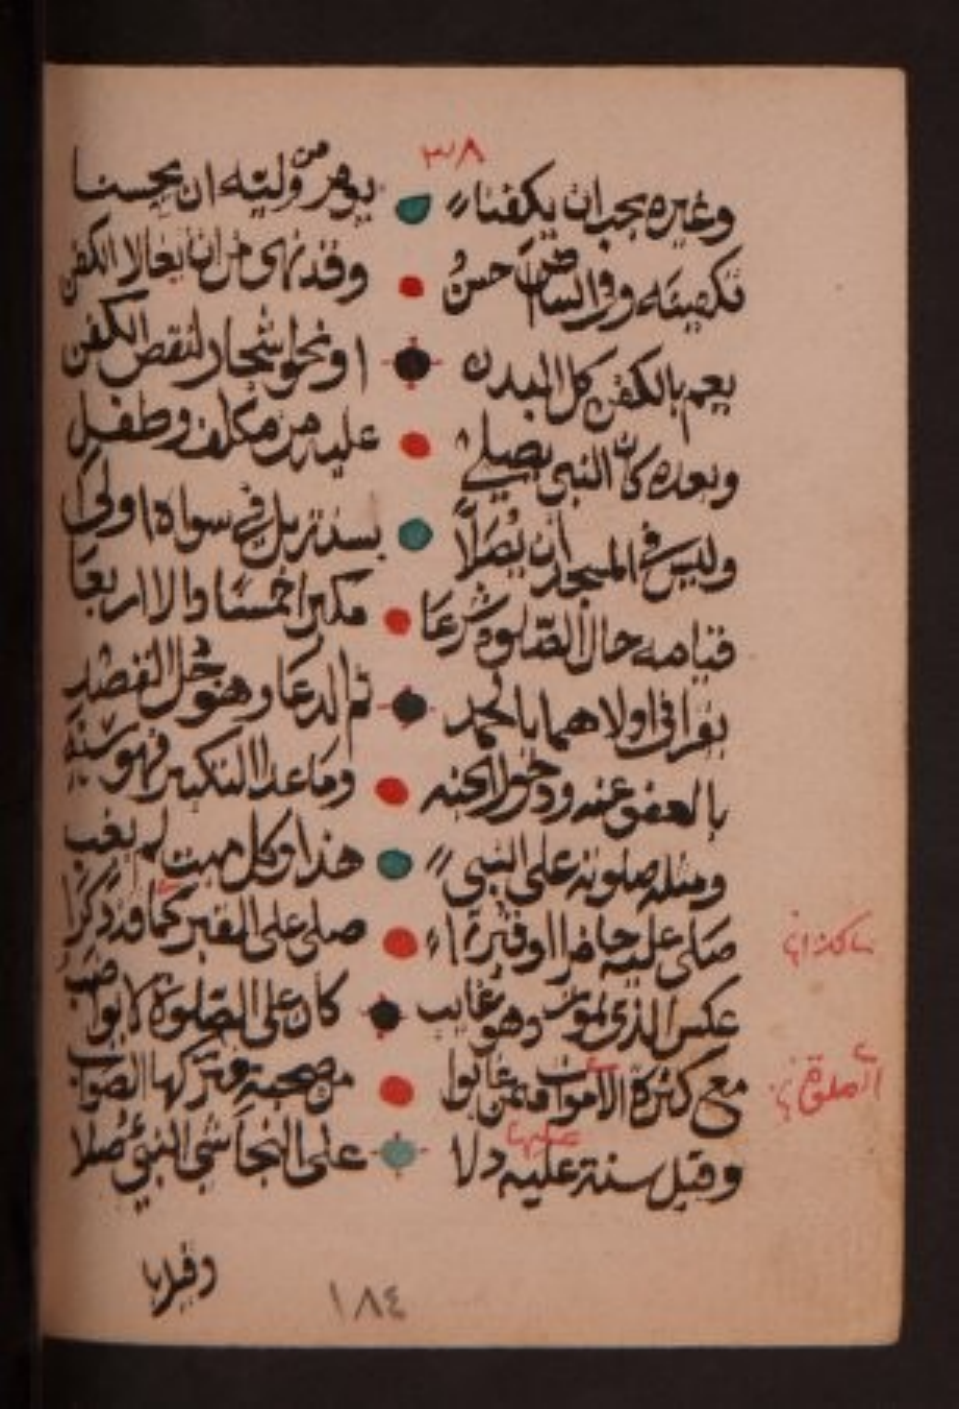 ٣٨
وغيره يجب ان يكفنا يومر من وليه ان يحسنا
تكفينه وفي البياض حسن وقد نهى من ان يغالا الكفن
يعم بالكفن كل البدن او نحو اشجار لنقص الكفن
وبعده كان النبي يصلي عليه من مكلف وطفل
وليس في المسجد ان يصلا بسنة بل في سواه اولى
قيامه حال الصلوة شرعا مكبرا خمسا والا اربعا
يقرا في اولاهما بالحمد ثم الدعا وهو جل القصد
بالعفو عنه ودخول الجنه وما عدا التكبير فهو سنه
ومثله صلوته على النبي هذا وكل ميت لم يغب
صلى عليه حاضرا او قبرا صلى على القبر كما قد ذكرا
عكس الذي يموت وهو غايب كان على الصلوة لا يواضب
مع كثرة الاموات ممن غابوا من صحبه فتركها الصواب
وقيل سنة عليه دلا على النجاشي النبي صلا
الصلوة
عليها
وقيل
١٨٤